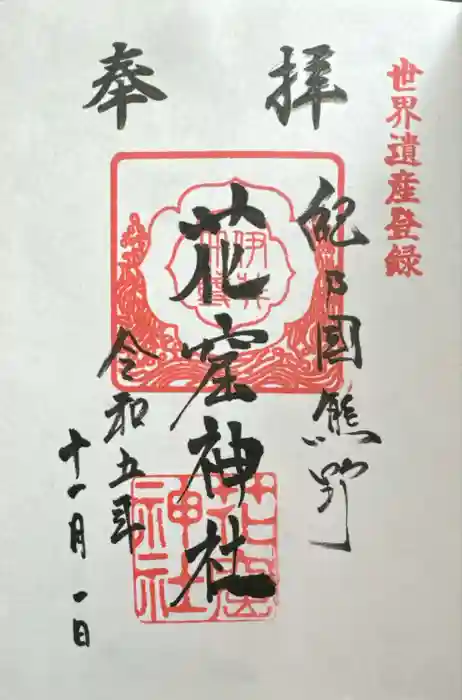 世界遺産登録
奉拝
紀乃國熊野
花窟神社
令和五年
十一月一日
花窟
神社